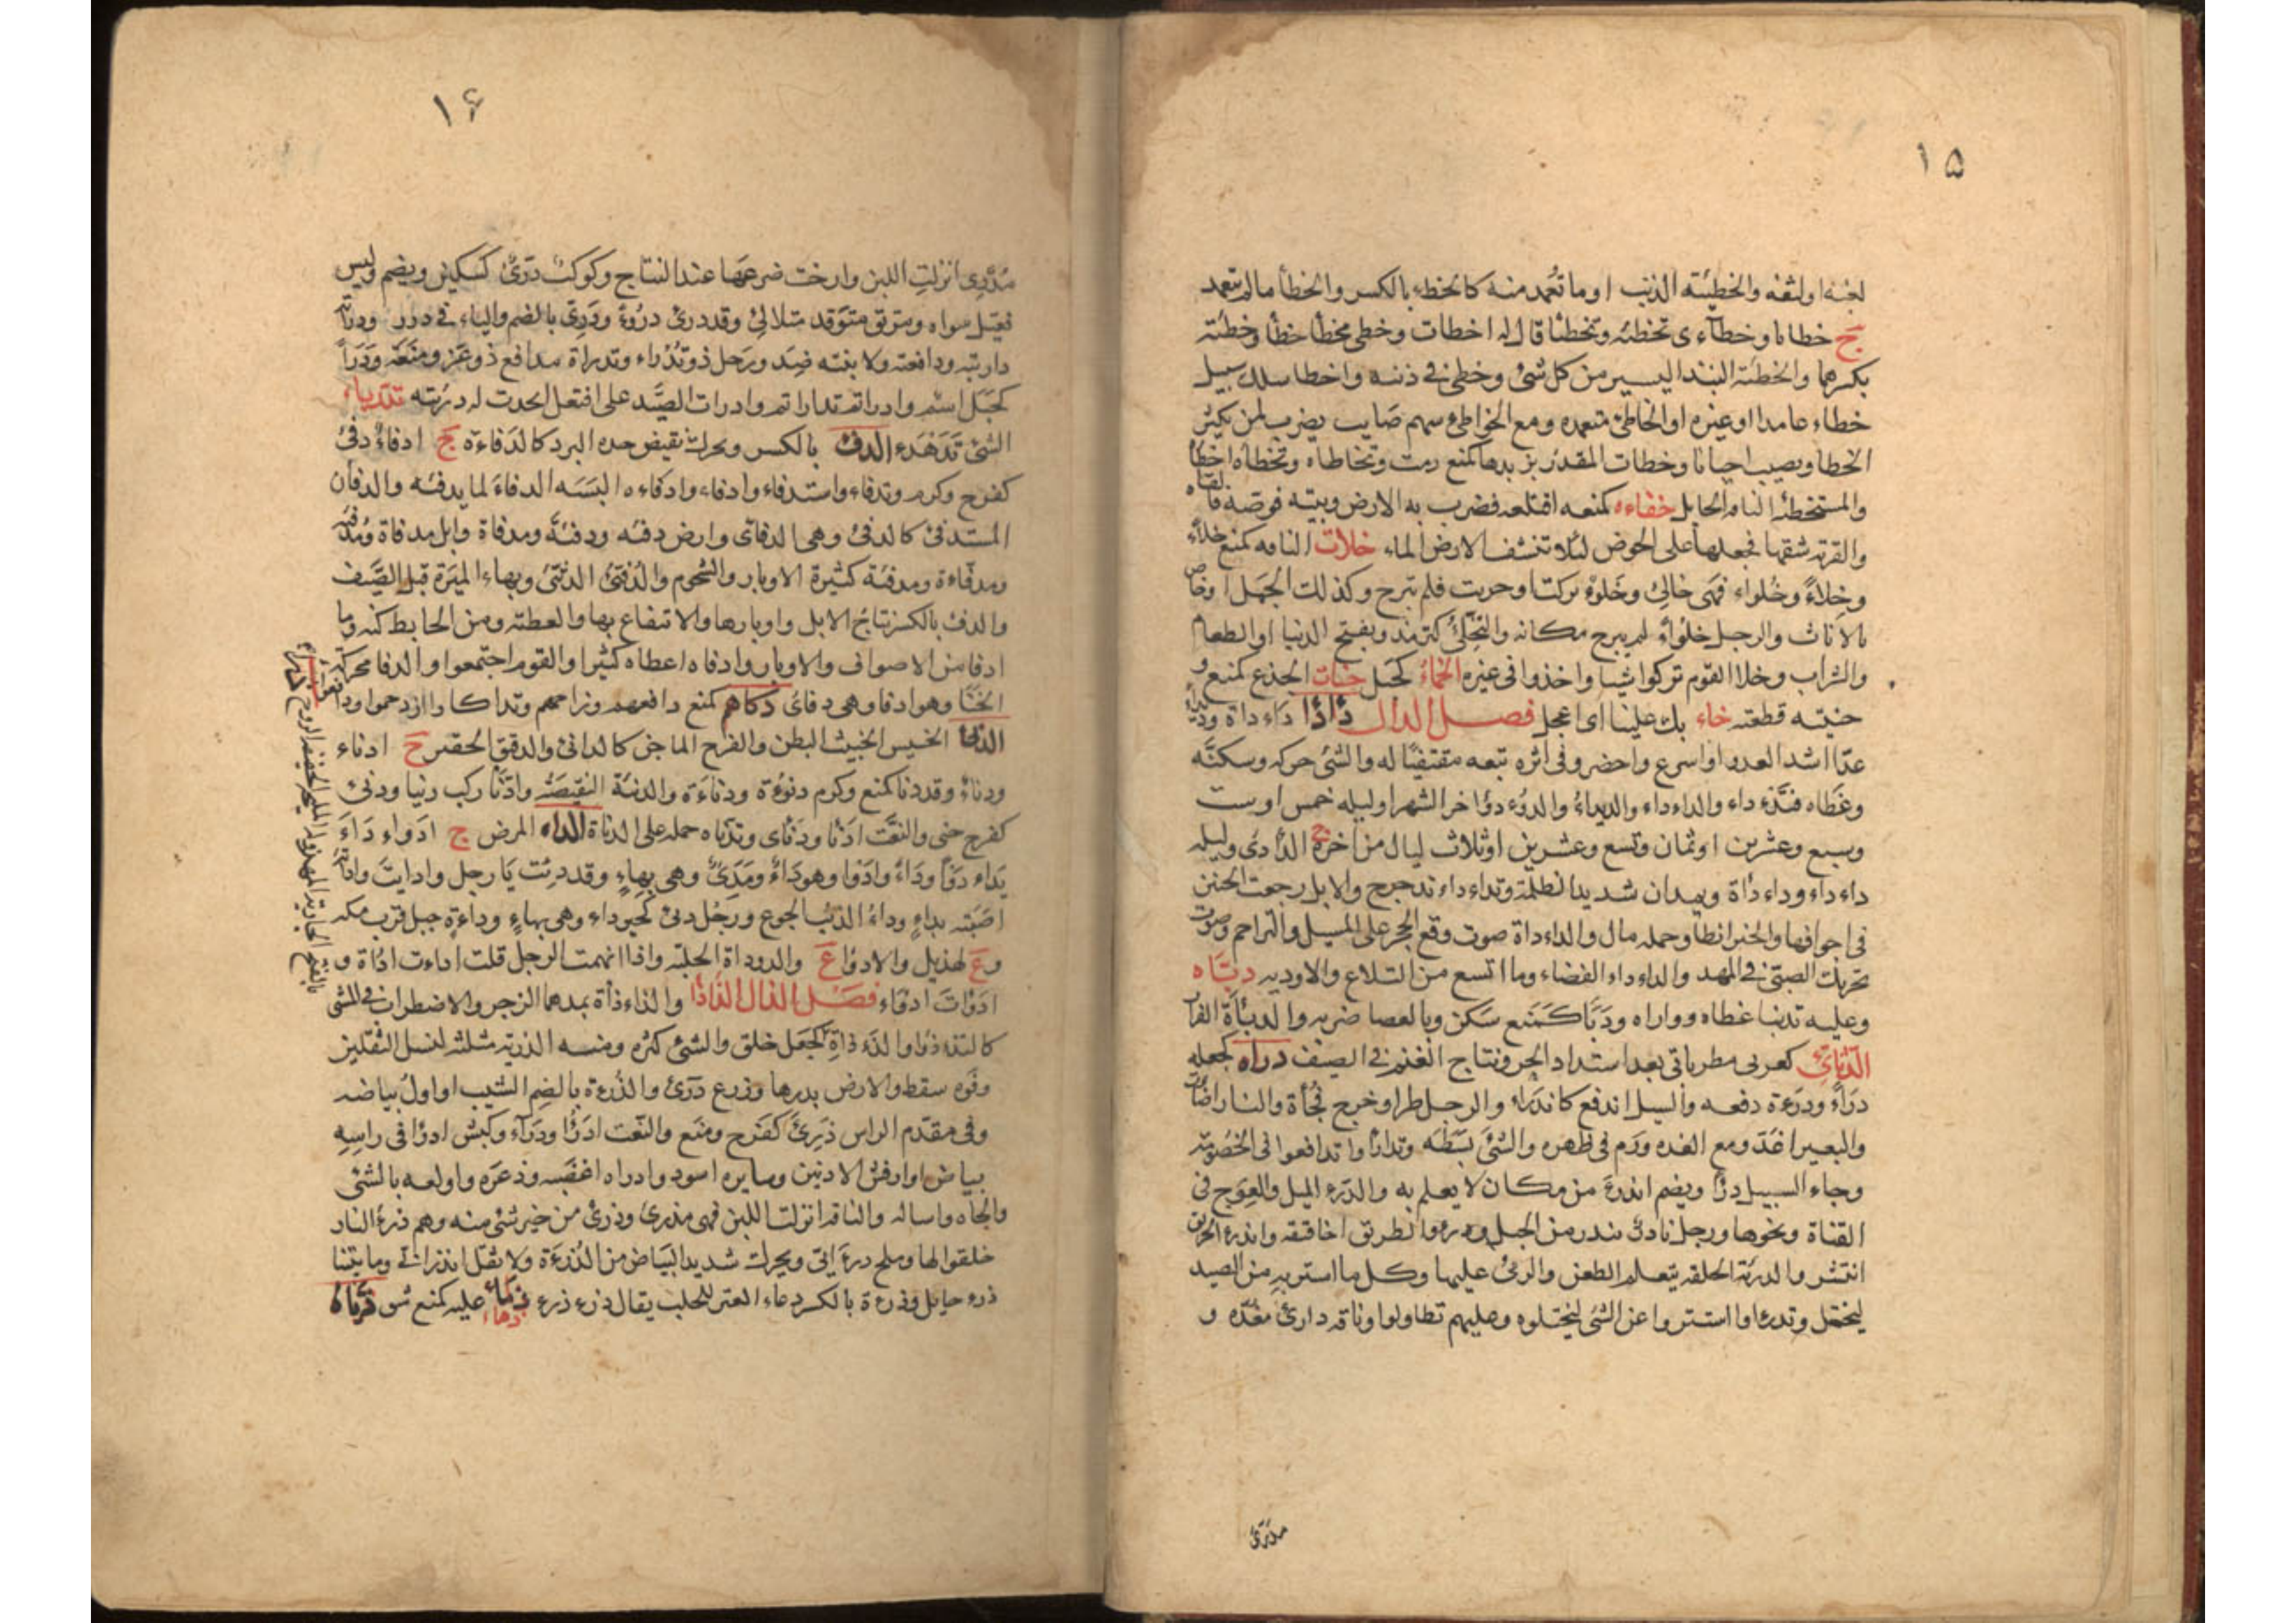 ١٥
لغبه او لثغه والخطيئة الذنب او ما تُعمد منه كالخطء بالكسر والخطأ ما لم يتعمد
ج خطايا وخطآءى تخطئه وتخطئا قال له اخطات وخطى مخطأ خطأ وخطئة
بكسرهما والخطئة النبذ اليسير من كل شئ وخطئ فى ذنبه واخطا سلك سبيل
خطاء عامدا او غيره او الخاطئ متعمده ومع الخواطئ سهم صايب يضرب لمن يكثر
الخطا ويصيب احيانا وخطات القدر بزبدها كمنع رمت وتخاطاه وتخطأه اخطأ
والمستخطئة الناقة الحايل خفاءه كمنعه اقتلعه فضرب به الارض وبيته قوضه فالقاه
والقربة شقها فجعلها على الحوض لئلا تنشف الارض الماء خلات الناقه كمنع خلاء
وخِلاءً وخُلواء فهى خالئ وخَلوْء بركت او حرنت فلم تبرح وكذلك الجمل او خاص
بالاناث والرجل خلوأ لم يبرح مكانه والتخلئ كترمذ ويفتح الدنيا او الطعام
والشراب وخلاا القوم تركوا شيا واخذوا فى غيره الخمأ كجبل خنات الجذع كمنع و
حنيته قطعته خاء بك علينا اى اعجل فصل الدال دأدأ دَاءداة وديداء
عدا اشد العدو او اسرع واحضر وفى اثره تبعه مقتفيًا له والشئ حركه وسكنه
وغطاه فتدَاداء والداءداء والديداءُ والدُوُء دؤ اخر الشهر او ليله خمس او ست
وسبع وعشرين او ثمان وتسع وعشرين او ثلاث ليال من اخره ج الدأدئ وليله
داءداء وداءدأة ويمدان شديدا لظلمة وتداءداء تدحرج والابل رجعت الحنين
فى اجوافها والخبر ابطا وحمله مال والداءداة صوت وقع الحجر على المسيل والتزاحم وصوت
تحريك الصبى فى المهد والداءداء الفضاء وما اتسع من التلاع والاوديه دبّاه
وعليه تدبئا غطاه وواراه ودَبَأ كَمَنع سَكن وبالعصا ضربه والدبأة الفرار
الدثائئ كعربى مطر ياتى بعد استداد الحر ونتاج الغنم فى الصيف دراه كجعله
درَاءً ودرَءة دفعه والسيل اندفع كاندَراء والرجل طرا وخرج فُجأة والنار اضات
والبعير اغدّ ومع الغده ورَم فى ظهره والشئ بَسَطَه وتدارأوا تدافعوا فى الخصومة
وجاء السيل درْأ ويضم اندرءَ من مكان لا يعلم به والدرء الميل والعِوَج فى
القناة ونحوها ورجل نادئ يندر من الجبل ودروءا لطريق اخاقيقه واندرء الحريق
انتشر والدرئة الحلقه يتعلم الطعن والرمى عليها وكل ما استتر به من الصيد
ليختل وتدرءاوا استتروا عن الشئ ليختلوه وعليهم تطاولوا وناقه دارئ مغدّه و
مدرئ
١٦
مُدْرِى انزلت اللبن وارخت ضرعها عند النتاج وكوكب درّئ كسكين ويضم وليس
فعّيل سواه ومريق متوقد متلالئ وقد درئ درُوءً ودُرّى بالضم والياء فى درر ودرأته
داريته ودافعته ولاينته ضد ورَجل ذو تُدْراء وتدراة مدافع ذو عز ومنَعَه ودَرأ
كجبَل اسم واداراتم تداراتم وادرات الصَّيد على افتعل اتحدت له درئة تدرّباء
الشئ تَدَهْدَء الدفئ بالكسر ويحرك نقيض حده البرد كالدَفاءة ج ادفاءٌ دفئ
كفرح وكرم وتدفاء واستدفاء وادفاء وادفاءه البَسَه الدفاء لما يدفئه والدفان
المستدفئ كالدفئ وهى الدفآى وارض دفئه ودفئة ومدفاة وابل مدفاة ومُدفئه
ومدفّاءة ومدفئة كثيرة الاوبار والشحوم والدُفئى الدثئى وبهاء الميرة قبل الصَّيف
والدفئ بالكسر نتاج الابل واوبارها والانتفاع بها والعطية ومن الحايط كنه وما
ادفا من الاصواف والاوبار وادفاه اعطاه كثيرا والقوم اجتمعوا والدفا محركه
الحنَأ وهو ادفا وهى دفاى دكأهم كمنع دافعهم وزاحمهم وتداكاوا ازدحموا وتدافعوا
الدنأ الخسيس الخبيث البطن والفرج الماجن كالدانئ والدقيق الحقير ج ادناء
ودناءٌ وقد دنا كمنع وكرم دنوءة ودناءَة والدنئة النقيصَة وادْنَا ركب دنيا ودنئ
كفرح حنى والنعت ادَنْا ودَنْاى وتدنّاه حمله على الدناة الداء المرض ج ادَواء دَاءَ
يَداء دَوَاً ودَاءً وادَوَا وهو دَاءٌ ومَدِئٌ وهى بهاءٍ وقد دئت يَا رجل وادايتَ وادَاته
اصَبته بداءٍ وداءُ الذئب الجوع ورجُل دئئ كخير داء وهى بهاءٍ وداءةٍ جبل قرب مكه
وع لهذيل والادوا ع والدوداة الجلبة واذا اتهمت الرجل قلت اداءت اداة و
ادَوات ادواء فصل الذال الذَاذأ والذاءذأة بمدهما الزجر والاضطراب فى المشى
كالتذءذءا والذَءذاة كجعَل خلق والشئ كثره ومنه الذرية مثلثة لنسل الثقلين
وفَوه سقط والارض بذرها وزرع ذرَئ والذُرءة بالضِم الشيب او اولُ بياضه
وفى مقدّم الراس ذَرِئَ كفَرح ومنَع والنّعت اذرُأ وذرَآء وكبش اذرَأ فى راسِهِ
بياض او ارقش الاذنين وسايره اسود وادراه اغضَبه وذعرَه واولعه بالشئ
والجأه واساله والناقه انزلت اللبن فهى مذرئ وذرئ من خير شئ منه وهم ذرءُ النار
خلقوا لها وملح درءَانى ويحرك شديد البَيَاض من الذُرْءَة ولا تقل انذرانى وما بيننا
ذرء حايل وذرءة بالكسر دعاء العنز للحلب يقال ذرء ذرء ذماء عليه كمنع شق ذيّاه